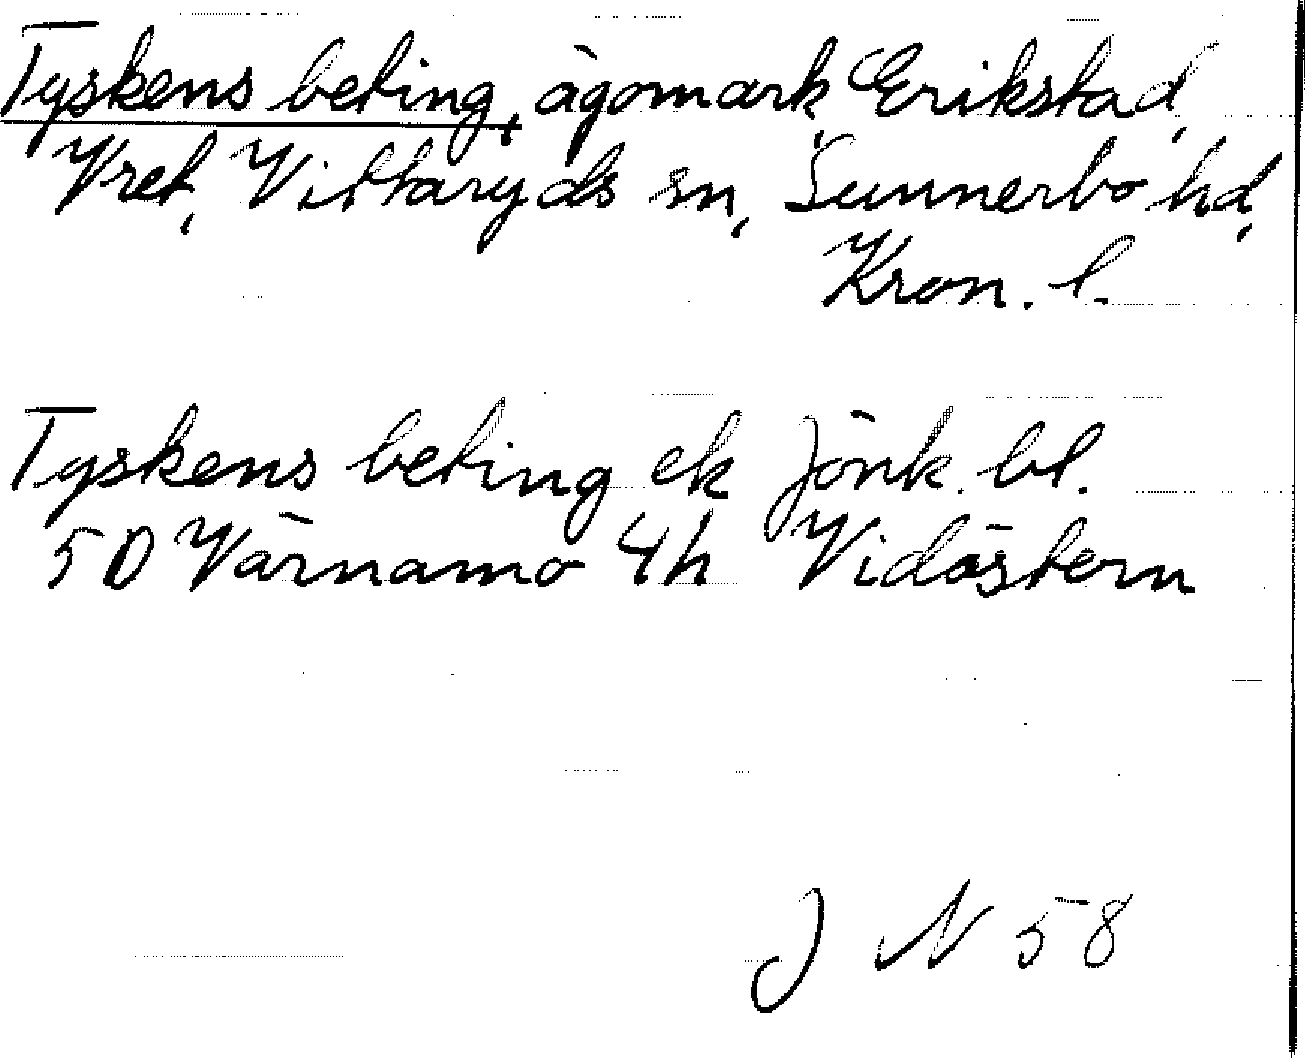 Tyskens beting, ägomark, Erikstad,
Vret, Vittaryds sn, Sunnerbo hd,
Kron. l.
Tyskens beting ek Jönk. bl.
5D Värnamo 4h Vidöstern
J N 58